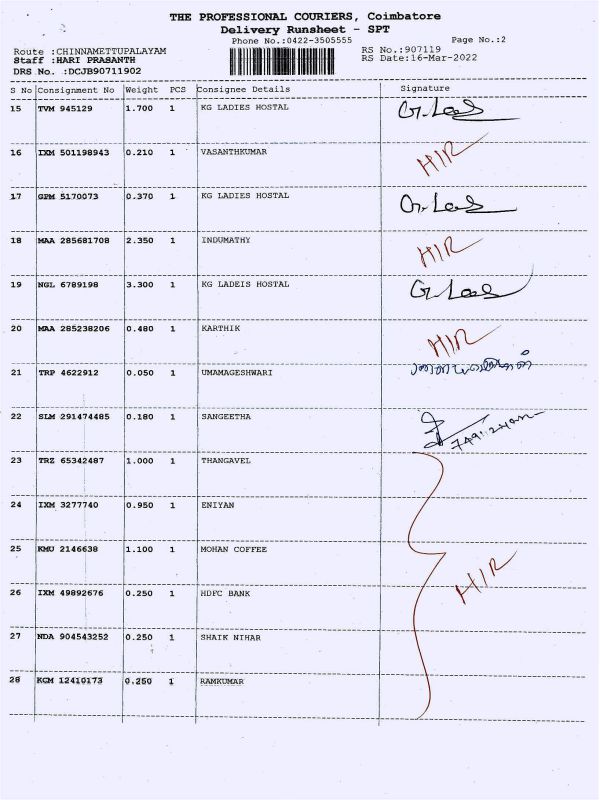 THE PROFESSIONAL COURIERS, Coimbatore
Delivery Runsheet - SPT
Phone No.:0422-3505555 Page No.:2
Route :CHINNAMETTUPALAYAM RS No.:907119
Staff :HARI PRASANTH RS Date:16-Mar-2022
DRS No. :DCJB90711902
S No Consignment No Weight PCS Consignee Details Signature
15 TVM 945129 1.700 1 KG LADIES HOSTAL
16 IXM 501198943 0.210 1 VASANTHKUMAR HIR
17 GPM 5170073 0.370 1 KG LADIES HOSTAL
18 MAA 285681708 2.350 1 INDUMATHY HIR
19 NGL 6789198 3.300 1 KG LADEIS HOSTAL
20 MAA 285238206 0.480 1 KARTHIK HIR
21 TRP 4622912 0.050 1 UMAMAGESHWARI
22 SLM 291474485 0.180 1 SANGEETHA
23 TRZ 65342487 1.000 1 THANGAVEL
24 IXM 3277740 0.950 1 ENIYAN
25 KMU 2146638 1.100 1 MOHAN COFFEE HIR
26 IXM 49892676 0.250 1 HDFC BANK
27 NDA 904543252 0.250 1 SHAIK NIHAR
28 KGM 12410173 0.250 1 RAMKUMAR